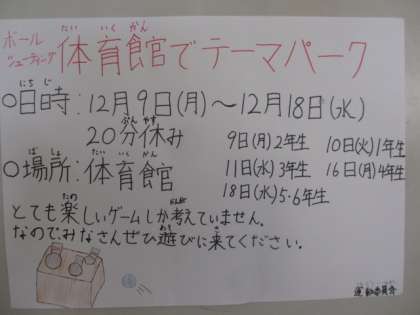 ボールシューティング 体育館でテーマパーク
たい いく かん
にちじ
○日時:12月9日(月)～12月18日(水)
ぷん やす
20分休み
9日(月)2年生 10日(火)1年生
ばしょ たい いく かん
○場所:体育館
11日(水)3年生 16日(月)4年生
18日(水)5・6年生
たの
とても楽しいゲームしか考えていません。
あそ き
なので、みなさんぜひ遊びに来てください。
運動委員会